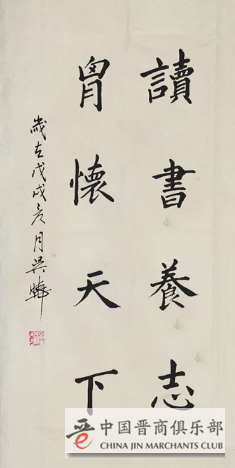 讀書養志
胷懷天下
歲在戊戌亥月吴
中国晋商俱乐部
CHINA JIN MERCHANTS CLUB